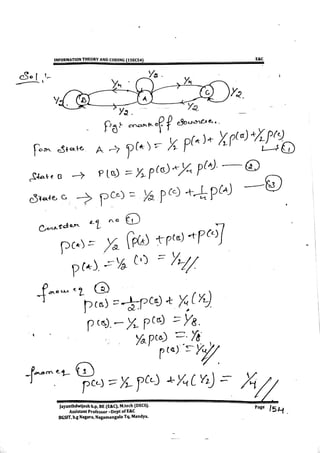 INFORMATION THEORY AND CODING (15EC54) E&C
Sol :-
¼ ½ ¼
½ B A C ½
½ ½
fig:- mark off source.
from state A → p(A) = ½ p(A) + ½ p(B) + ½ p(C) → ①
State B → p(B) = ½ p(B) + ¼ p(A). — ②
State C → p(C) = ½ p(C) + ¼ p(A) — ③
Consider eq no ①
p(A) = ½ [p(A) + p(B) + p(C)]
p(A) = ½ (1) = ½ //
from eq ②
p(B) = ½ p(B) + ¼ (½)
p(B) - ½ p(B) = ⅛.
½ p(B) = ⅛
p(B) = ¼ //
from eq ③
p(C) = ½ p(C) + ¼ (½) = ¼ //
Jayanthdwijesh h.p, BE (E&C), M.tech (DECS).
Assistant Professor –Dept of E&C
BGSIT, b.g Nagara, Nagamangala Tq, Mandya.
Page 154